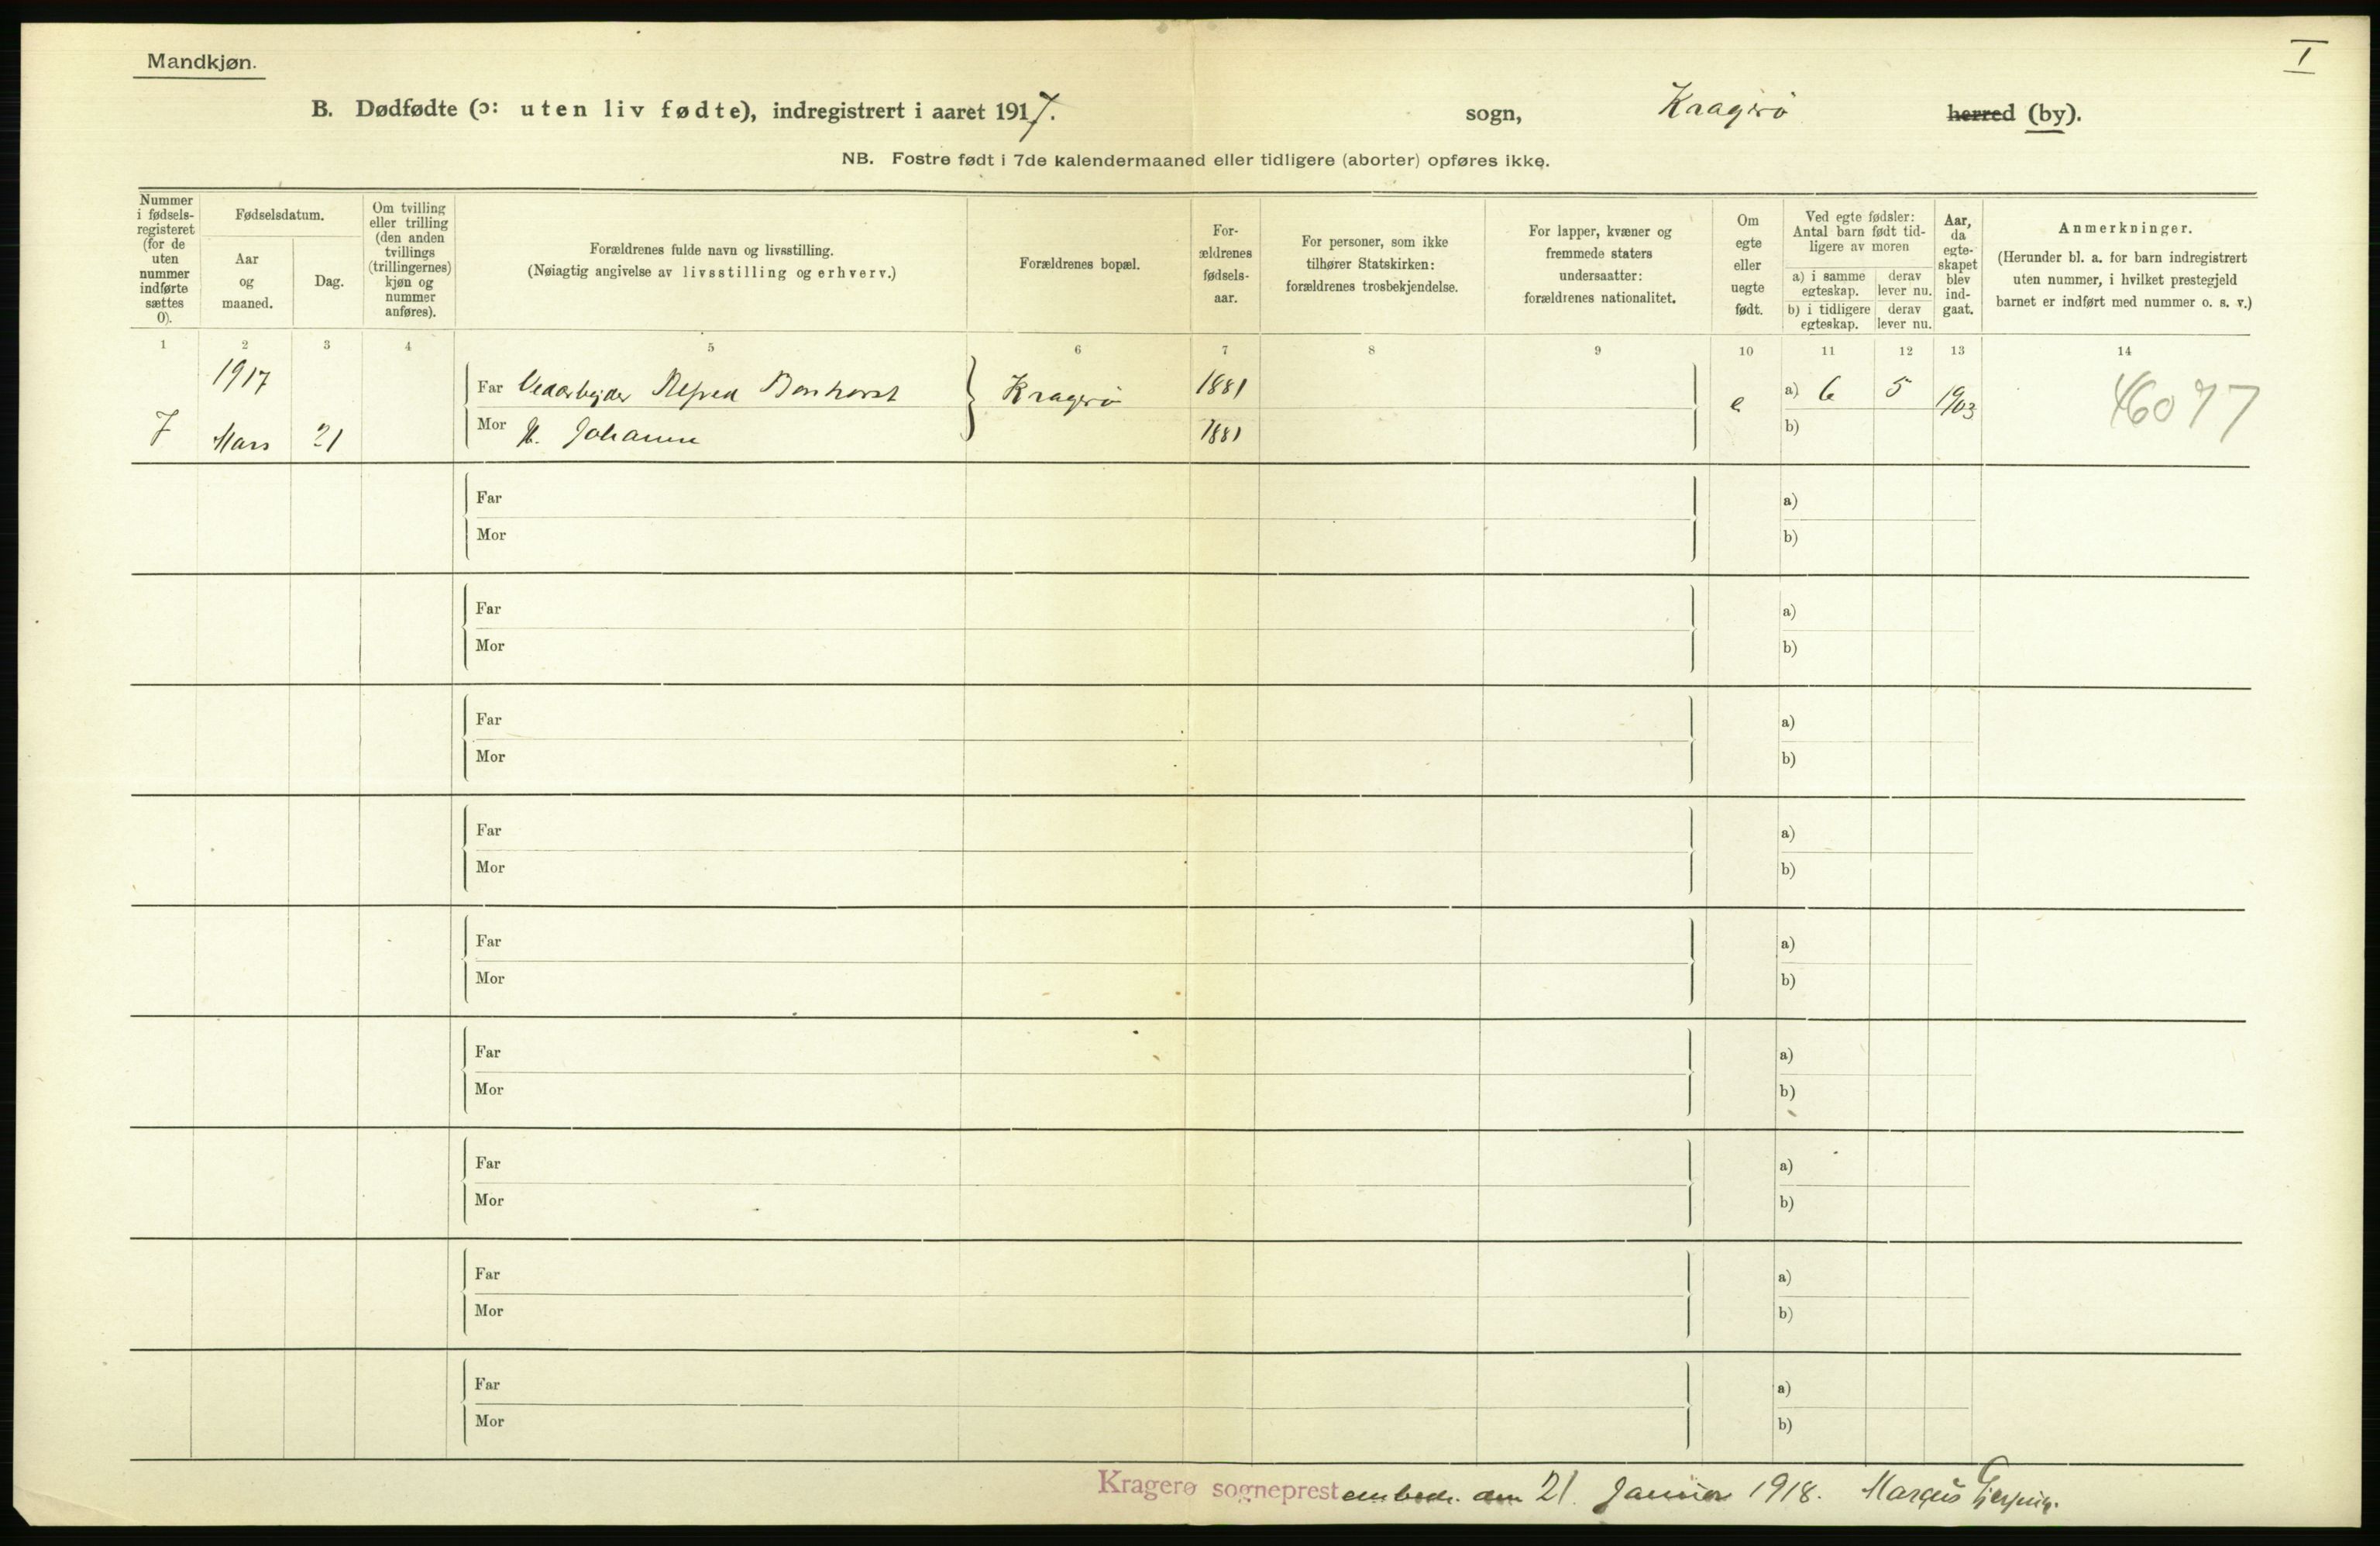 I
Mandkjøn.
B. Dødfødte (ɔ: uten liv fødte), indregistrert i aaret 1917. sogn, Kragerø herred (by).
NB. Fostre født i 7de kalendermaaned eller tidligere (aborter) opføres ikke.
Nummer i fødsels-registeret (for de uten nummer indførte sættes 0).
Fødselsdatum.
Aar og maaned.
Dag.
Om tvilling eller trilling (den anden tvillings (trillingernes) kjøn og nummer anføres).
Forældrenes fulde navn og livsstilling.
(Nøiagtig angivelse av livsstilling og erhverv.)
Forældrenes bopæl.
For-ældrenes fødsels-aar.
For personer, som ikke tilhører Statskirken: forældrenes trosbekjendelse.
For lapper, kvæner og fremmede staters undersaatter: forældrenes nationalitet.
Om egte eller uegte født.
Ved egte fødsler: Antal barn født tid-ligere av moren
a) i samme egteskap.
derav lever nu.
b) i tidligere egteskap.
derav lever nu.
Aar, da egte-skapet blev ind-gaat.
Anmerkninger.
(Herunder bl. a. for barn indregistrert uten nummer, i hvilket prestegjeld barnet er indført med nummer o. s. v.)
1 2 3 4 5 6 7 8 9 10 11 12 13 14
1917 Far Alfred Kragerø 1881 e a) 6 5 1903 46077
7 Mars 21 Mor H. Johanne 1881 b)
Far a)
Mor b)
Far a)
Mor b)
Far a)
Mor b)
Far a)
Mor b)
Far a)
Mor b)
Far a)
Mor b)
Far a)
Mor b)
Far a)
Mor b)
Far a)
Mor b)
Kragerø sogneprestembede den 21. Januar 1918. Marcus